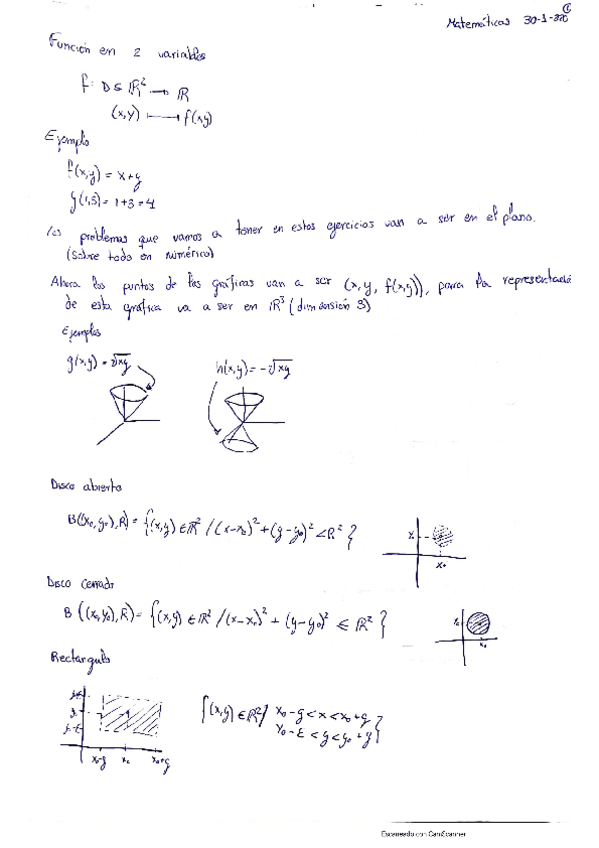 Matemáticas 30-1-220
①
Función en 2 variables
f: D ⊆ ℝ² → ℝ
(x,y) ⟼ f(x,y)
Ejemplo
f(x,y) = x+y
f(1,3) = 1+3 = 4
los problemas que vamos a tener en estos ejercicios van a ser en el plano.
(sobre todo en numérico)
Ahora los puntos de las gráficas van a ser (x, y, f(x,y)), para la representació
de esta gráfica va a ser en ℝ³ (dimensión 3)
Ejemplos
g(x,y) = √xy h(x,y) = -√xy
Disco abierto
B((x₀,y₀),R) = {(x,y) ∈ ℝ² / (x-x₀)² + (y-y₀)² < R²}
x₀
Disco cerrado
B ((x₀,y₀),R) = {(x,y) ∈ ℝ² / (x-x₀)² + (y-y₀)² ≤ R²}
x₀
Rectangulo
{(x,y) ∈ ℝ² / x₀-g < x < x₀+g
y₀-ε < y < y₀+g}
x₀-g x₀ x₀+g
Escaneado con CamScanner